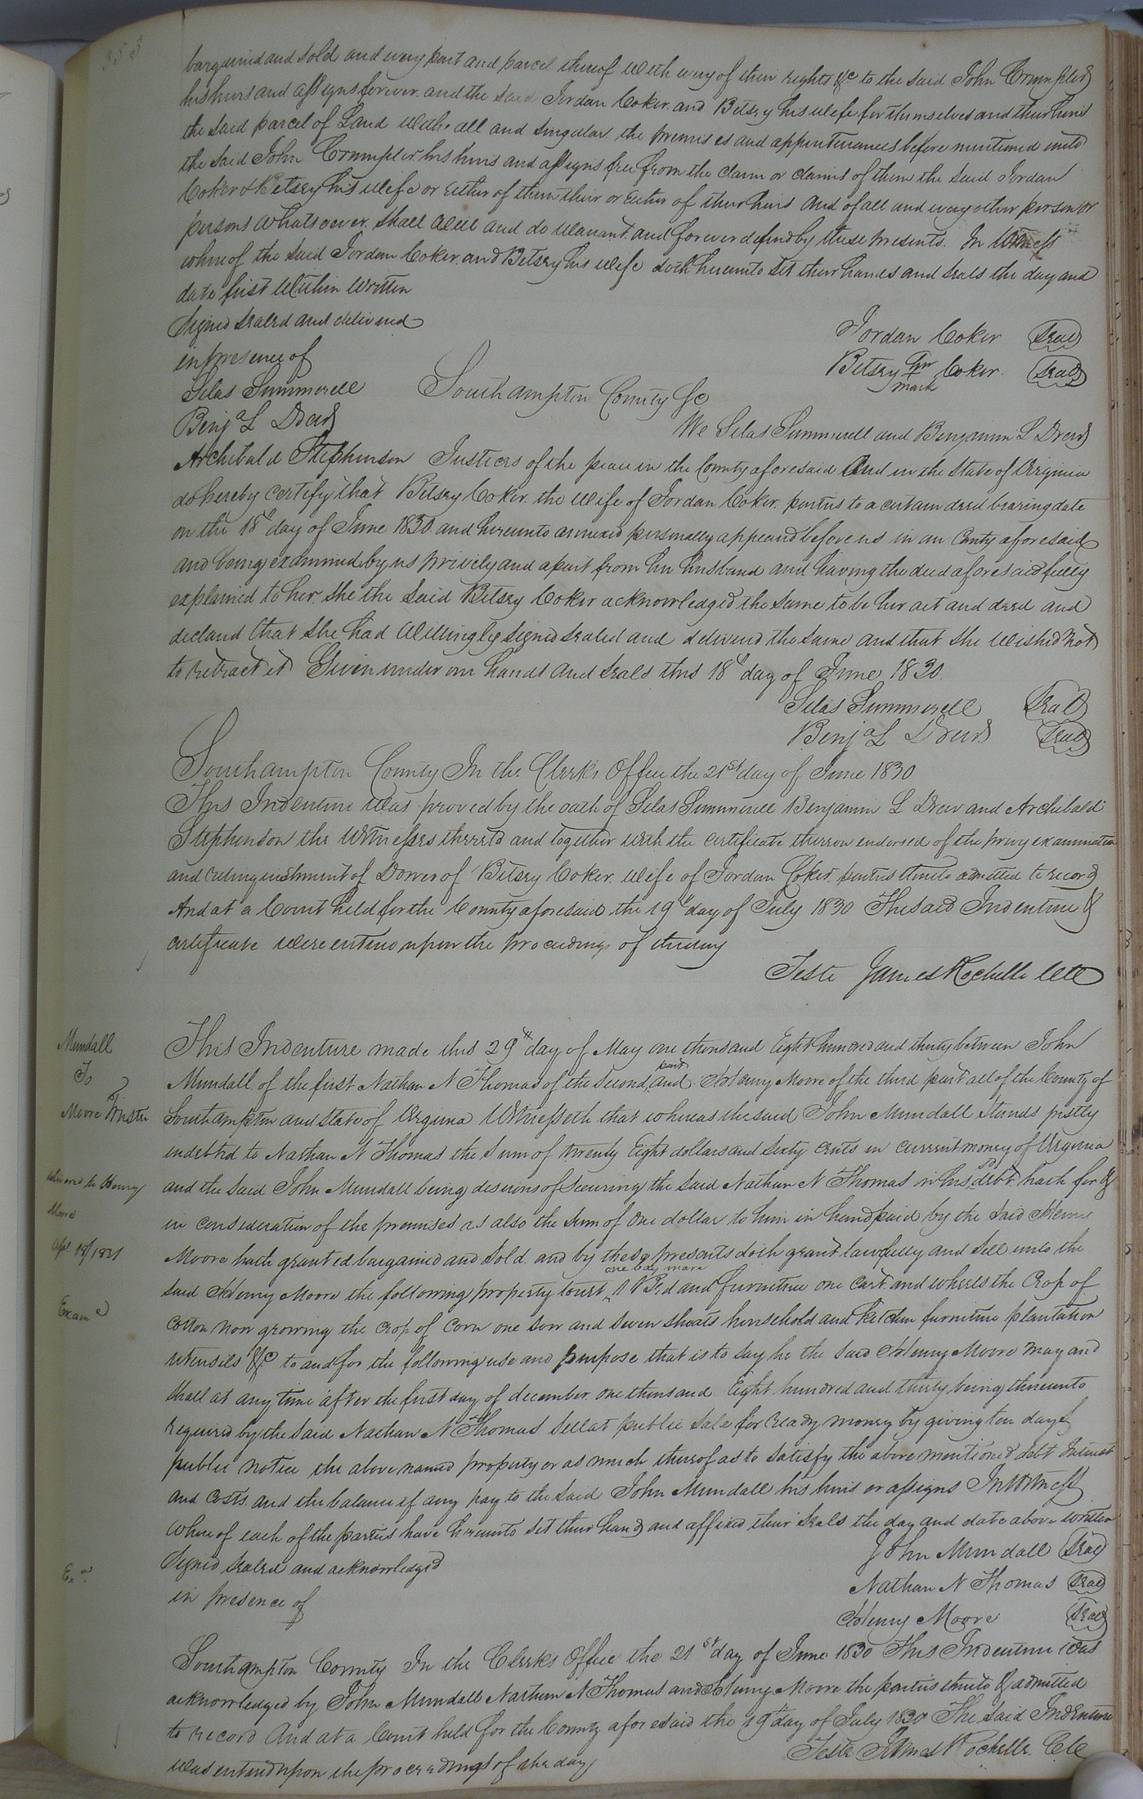 353
bargained and sold and every part and parcel thereof with every of their rights &c to the said John Crumpler
his heirs and assigns forever and the said Jordan Coker and Betsey his wife for themselves and their heirs
the said parcel of Land with all and singular the premises and appurtenances before mentioned unto
the said John Crumpler his heirs and assigns free from the claim or claims of them the said Jordan
Coker & Betsey his wife or either of them their or either of their heirs and of all and every other person or
persons whatsoever shall will and do warrant and forever defend by these presents. In Witness
whereof the said Jordan Coker and Betsey his wife doth hereunto set their hands and seals the day and
date first within written
Signed sealed and delivered
in presence of
Jordan Coker (Seal)
Betsey her mark Coker (Seal)
Silas Summerell
Benja L Drew
Southampton County Sc
We Silas Summerell and Benjamin L Drew
Archibald Stephenson Justices of the peace in the County aforesaid and in the State of Virginia
do hereby certify that Betsey Coker the wife of Jordan Coker parties to a certain deed bearing date
on the 18th day of June 1830 and hereunto annexed personally appeared before us in our County aforesaid
and being examined by us privily and apart from her husband and having the deed aforesaid fully
explained to her she the said Betsey Coker acknowledged the same to be her act and deed and
declared that she had willingly signed sealed and delivered the same and that she wished not
to retract it Given under our hands and seals this 18th day of June 1830.
Silas Summerell (Seal)
Benja L Drew (Seal)
Southampton County In the Clerks Office the 21st day of June 1830
This Indenture was proved by the oath of Silas Summerell Benjamin L Drew and Archibald
Stephenson the witnesses thereto and together with the certificate thereon endorsed of the privy examination
and relinquishment of Dower of Betsey Coker wife of Jordan Coker parties thereto admitted to record
And at a Court held for the County aforesaid the 19th day of July 1830 The said Indenture &
certificate were entered upon the proceedings of the day
Teste James Rochelle Clk
Mundall
To
Moore Trustee
This Indenture made this 29th day of May one thousand Eight hundred and thirty between John
Mundall of the first Nathan N Thomas of the second part and Henry Moore of the third part all of the County of
Southampton and State of Virginia Witnesseth that whereas the said John Mundall Stands justly
indebted to Nathan N Thomas the Sum of twenty Eight dollars and sixty cents in current money of Virginia
delivered to Henry
Moore
Apl 18th 1831
and the said John Mundall being desirous of securing the said Nathan N Thomas in his sd debt hath for &
in consideration of the premises as also the sum of one dollar to him in hand paid by the said Henry
Moore hath granted bargained and sold and by these presents doth grant lawfully and sell unto the
said Henry Moore the following property towit one bay mare 1 Bed and furniture one cart and wheels the Crop of
Examd
cotton now growing the crop of corn one sow and seven shoats household and kitchen furniture plantation
utensils &c to and for the following use and purpose that is to say he the said Henry Moore may and
shall at any time after the first day of december one thousand Eight hundred and thirty being thereunto
required by the said Nathan N Thomas sell at public sale for ready money by giving ten days
public notice the above named property or as much thereof as to satisfy the above mentioned debt Interest
and costs and the balance if any pay to the said John Mundall his heirs or assigns In Witness
whereof each of the parties have hereunto set their hand and affixed their seals the day and date above written
Signed sealed and acknowledged
in presence of
John Mundall (Seal)
Nathan N Thomas (Seal)
Henry Moore (Seal)
Exd
Southampton County In the Clerks Office the 21st day of June 1830 This Indenture was
acknowledged by John Mundall Nathan N Thomas and Henry Moore the parties thereto & admitted
to record And at a Court held for the County aforesaid the 19th day of July 1830 The said Indenture
was entered upon the proceedings of the day
Teste James Rochelle Clk